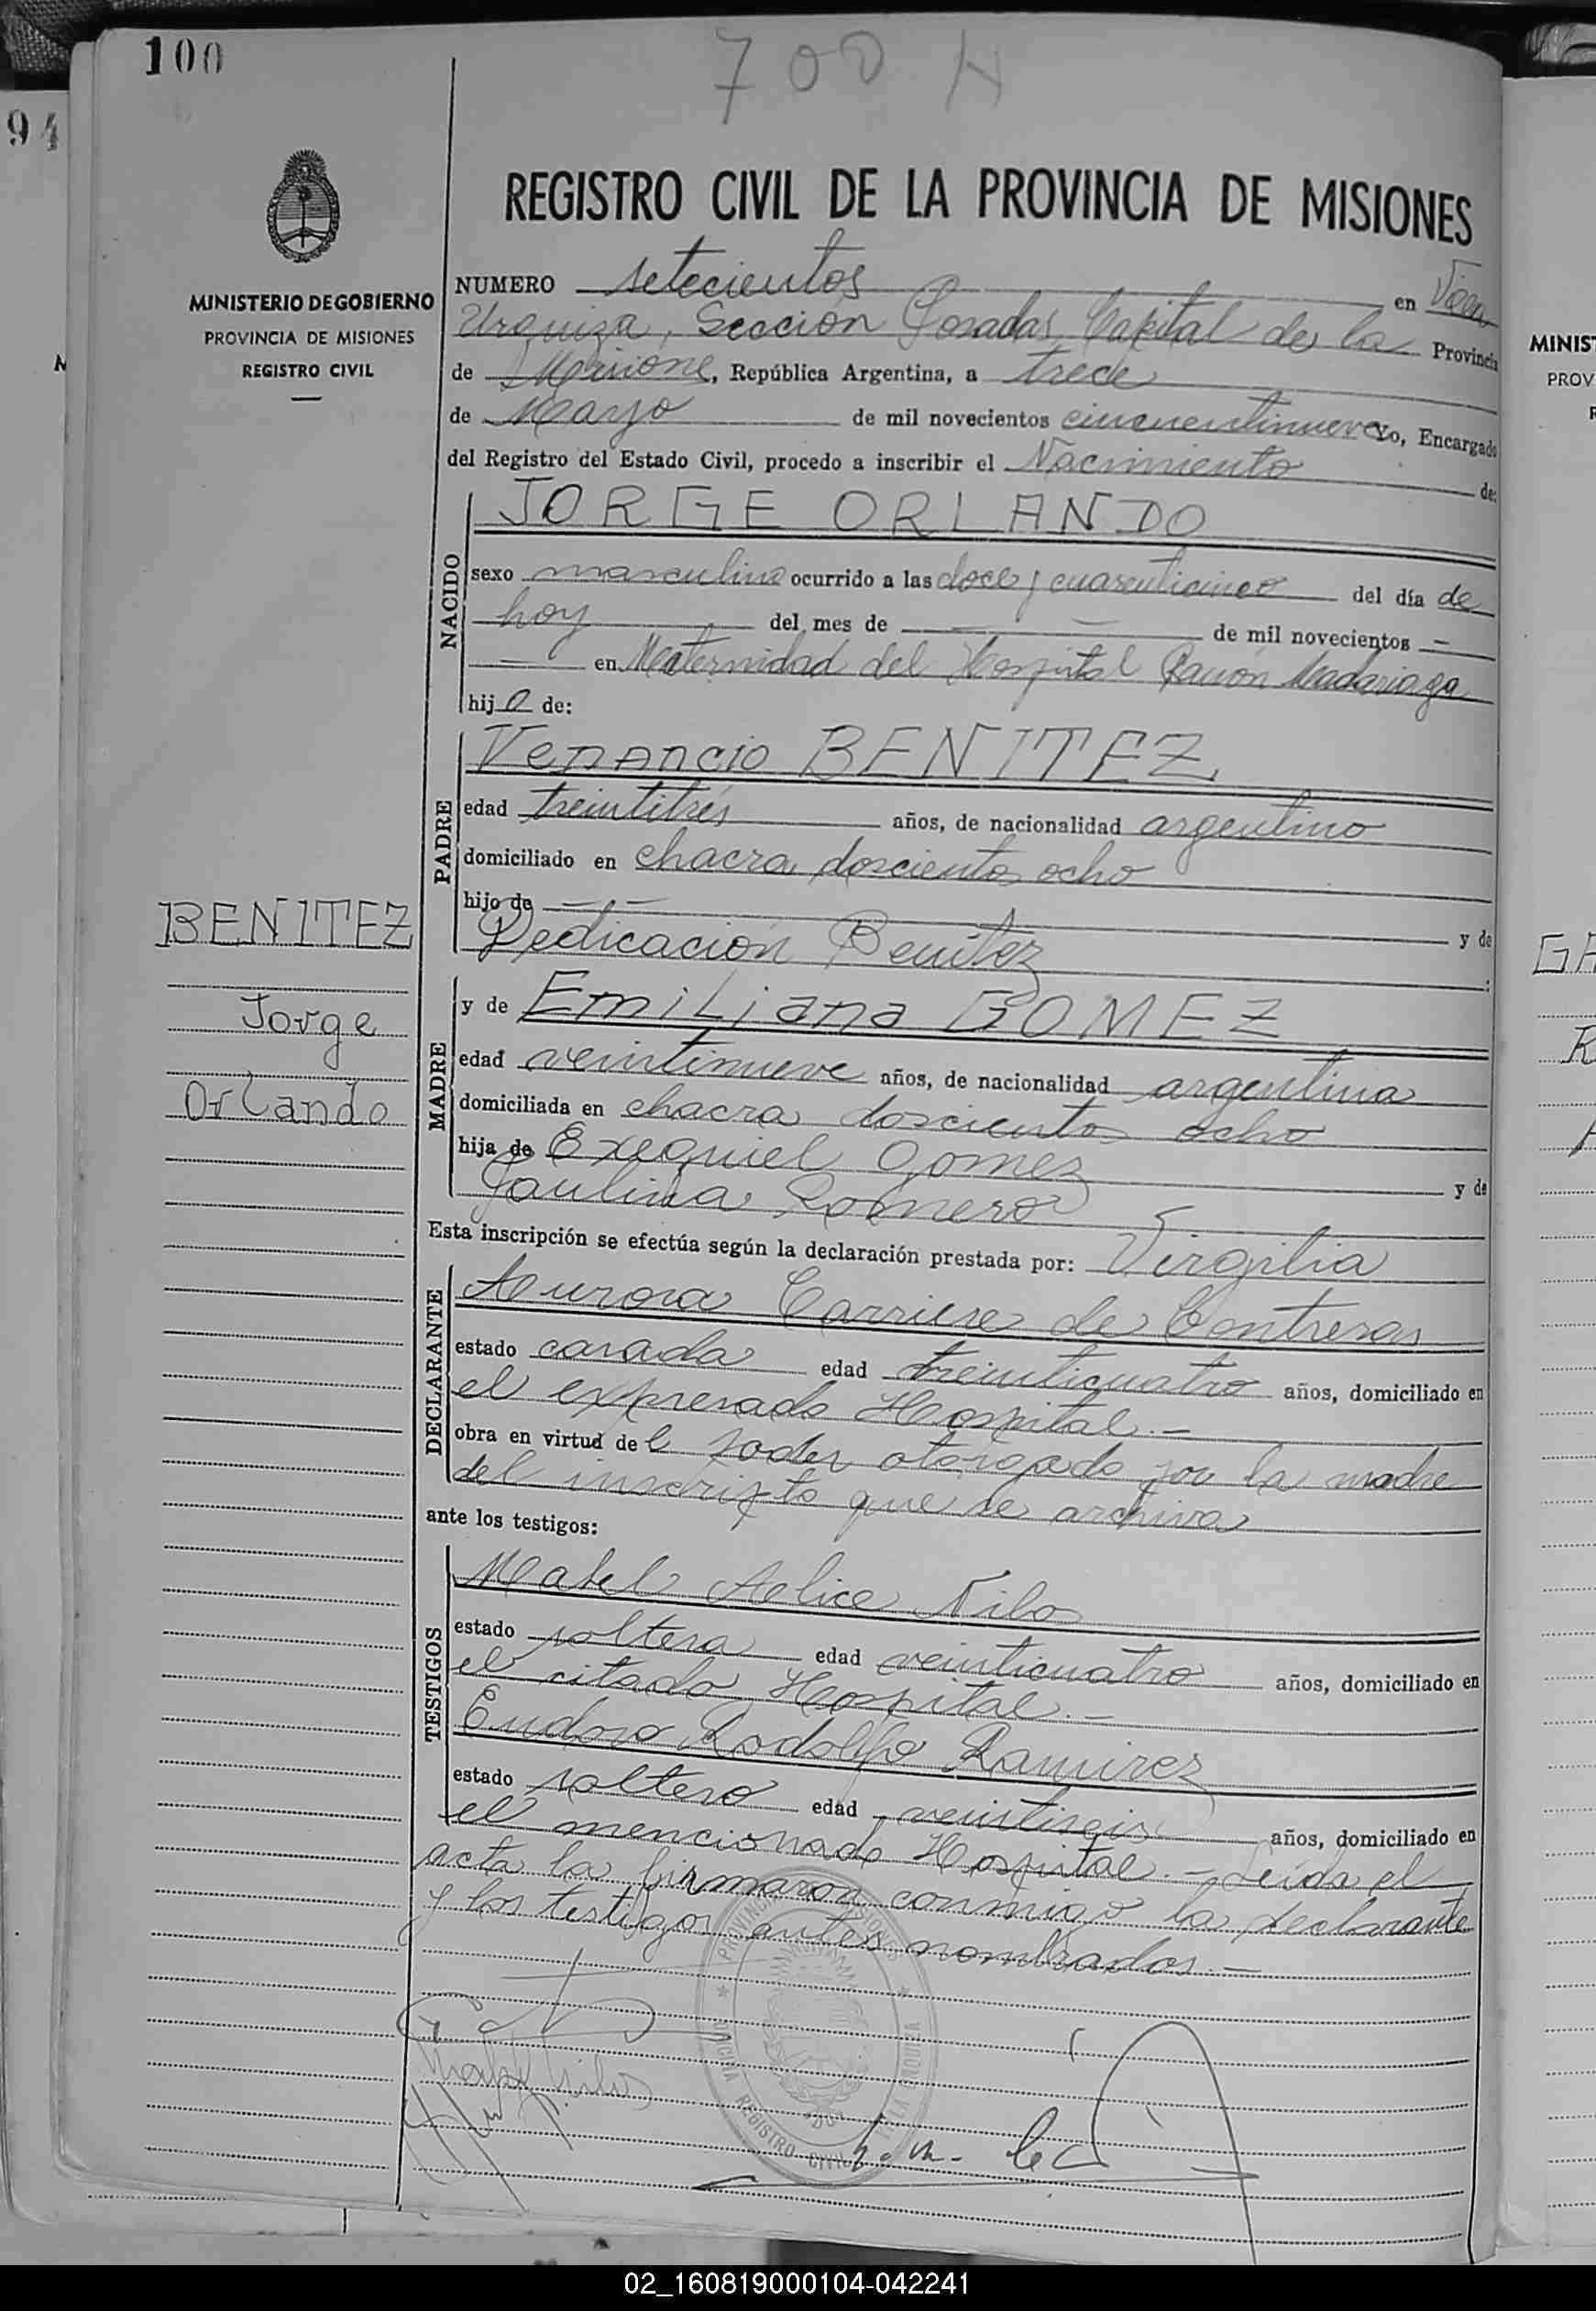 100
700 H
94
MINISTERIO DE GOBIERNO
PROVINCIA DE MISIONES
REGISTRO CIVIL
REGISTRO CIVIL DE LA PROVINCIA DE MISIONES
NUMERO setecientos en Villa
Urquiza, Sección Posadas Capital de la Provincia
de Misiones, República Argentina, a trece
de Mayo de mil novecientos cincuentinueve Yo, Encargado
del Registro del Estado Civil, procedo a inscribir el Nacimiento de:
JORGE ORLANDO
NACIDO
sexo masculino ocurrido a las doce y cuarenticinco del día de
hoy del mes de — — de mil novecientos —
— en Maternidad del Hospital Ramón Madariaga
hijo de:
Venancio BENITEZ
PADRE
edad treintitrés años, de nacionalidad argentino
domiciliado en chacra doscientos ocho
hijo de — — y de
Dedicación Benitez
BENITEZ
Jorge
Orlando
MADRE
y de Emiliana GOMEZ
edad veintinueve años, de nacionalidad argentina
domiciliada en chacra doscientos ocho
hija de Exequiel Gomez y de
Paulina Romero
Esta inscripción se efectúa según la declaración prestada por: Virgilia
DECLARANTE
Aurora Carriere de Contreras
estado casada edad treinticuatro años, domiciliado en
el expresado Hospital.—
obra en virtud del poder otorgado por la madre
del inscripto que se archiva
ante los testigos:
TESTIGOS
Mabel Alice Nilos
estado soltera edad veinticuatro años, domiciliado en
el citado Hospital.—
Eudoro Rodolfo Ramirez
estado soltero edad veintiseis años, domiciliado en
el mencionado Hospital.— Leída el
acta la firmaron conmigo la declarante
y los testigos antes nombrados.—
Mabel Nilos
OFICINA REGISTRO CIVIL
MINIST
PROV
02_160819000104-042241